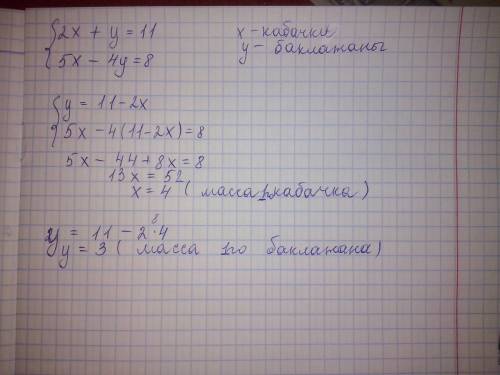 2x + y = 11
5x - 4y = 8
x - кабачки
y - баклажаны
y = 11 - 2x
5x - 4(11 - 2x) = 8
5x - 44 + 8x = 8
13x = 52
x = 4 ( масса 1 кабачка )
8
y = 11 - 2·4
y = 3 ( масса 1го баклажана )